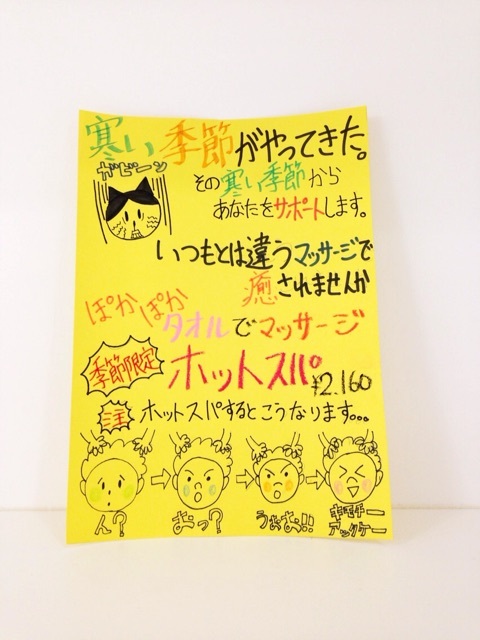 寒い季節がやってきた。
ガビーン
その寒い季節から
あなたをサポートします。
いつもとは違うマッサージで
癒されませんか
ぽかぽか
タオルでマッサージ
季節限定
ホットスパ
¥2.160
注 ホットスパするとこうなります。。。
ん?
おっ?
うぉぉ!!
キモチー
アッタケー